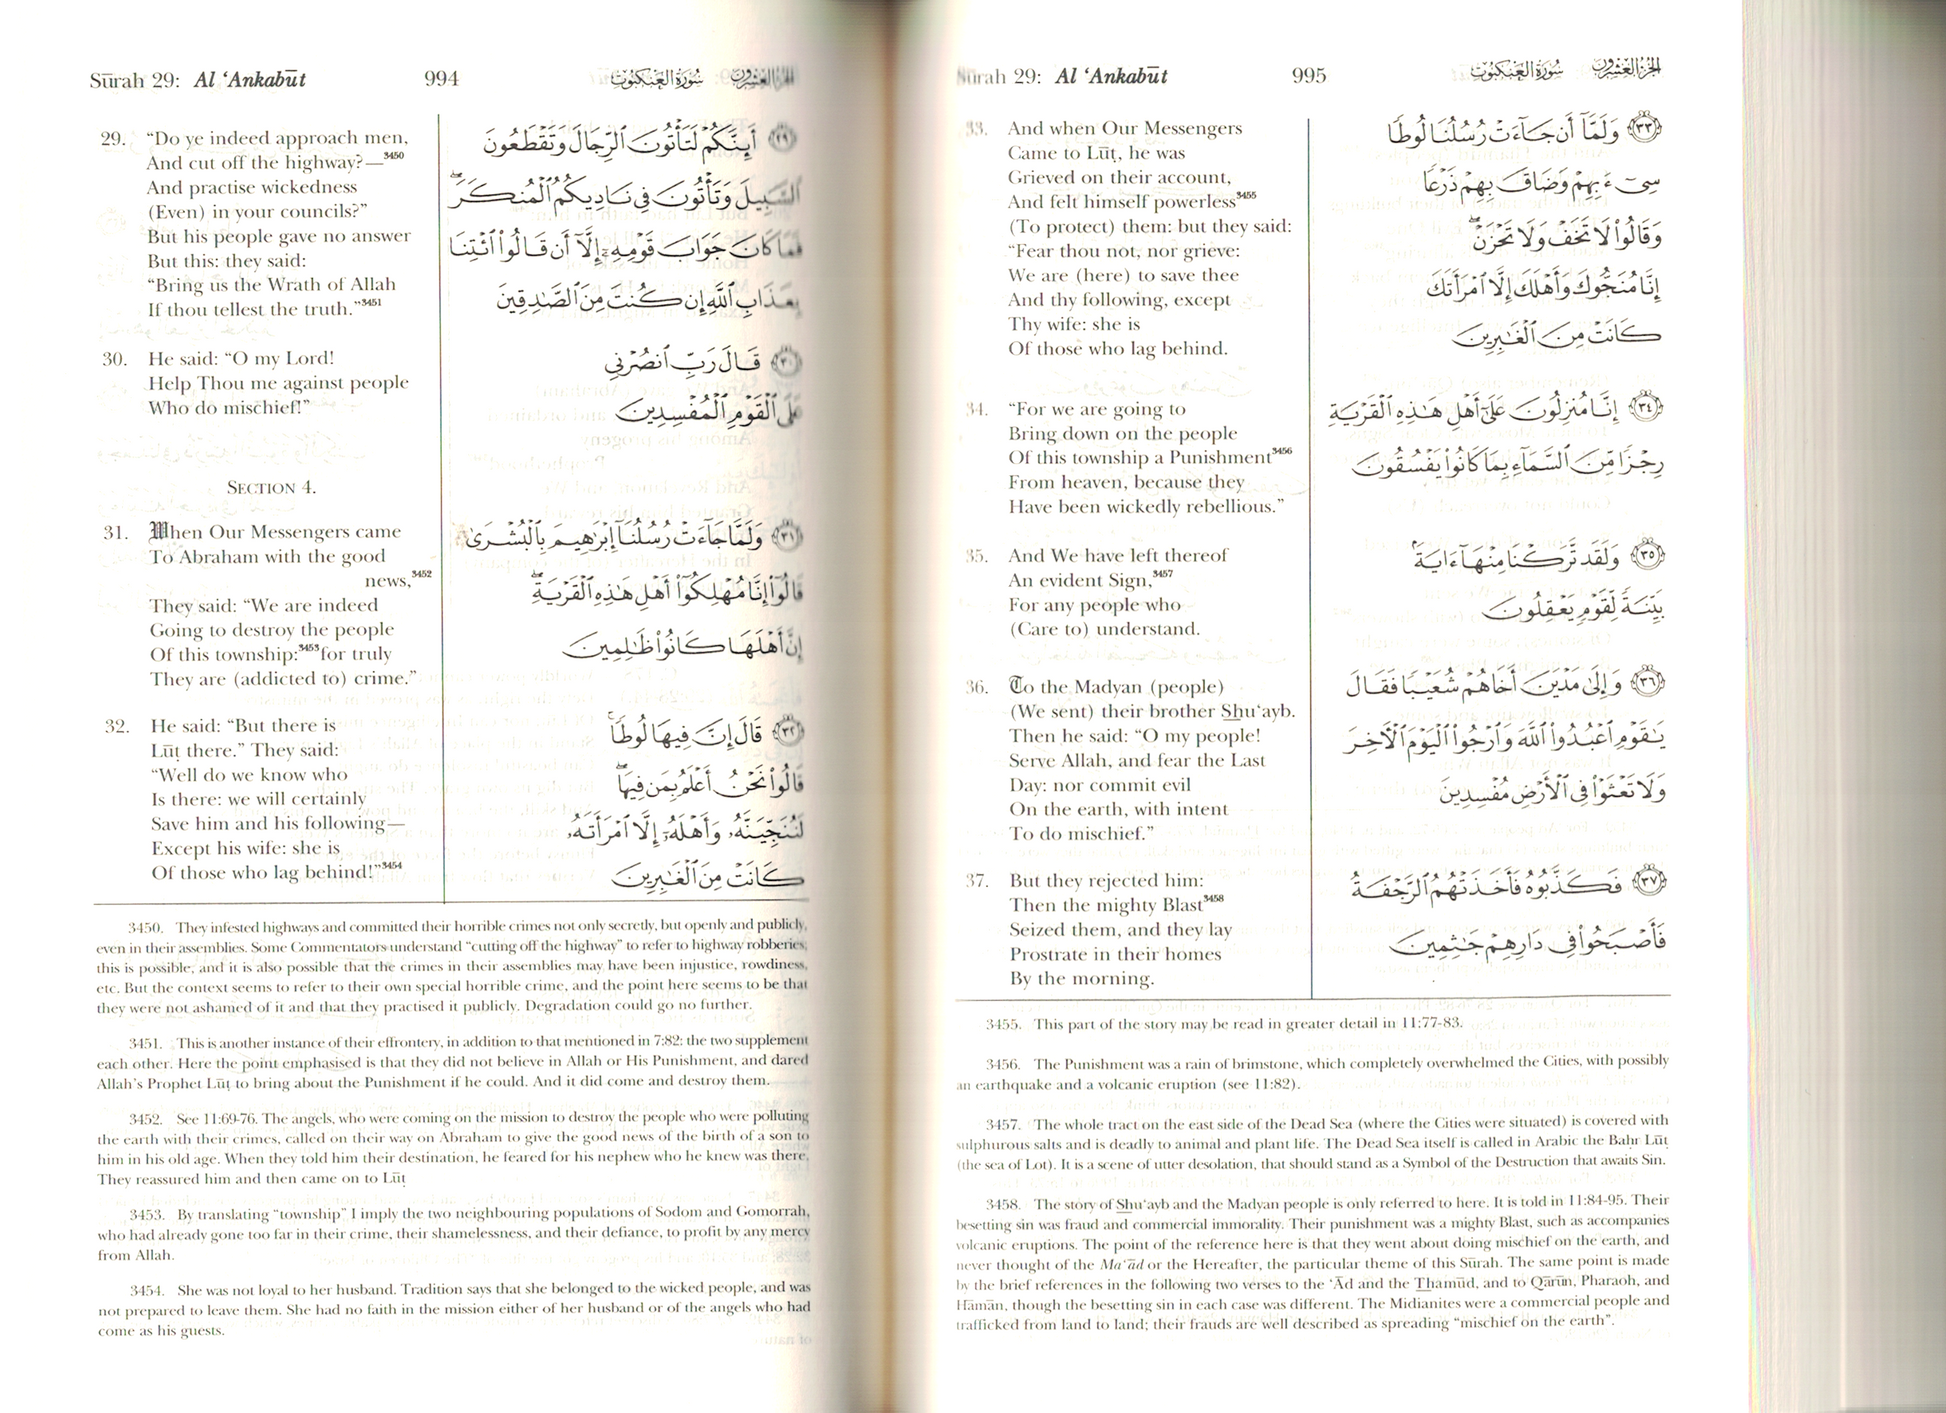 Sūrah 29: Al ‘Ankabūt 994 سُورَةُ العَنكَبُوت الجُزءُ العِشرُون
29. “Do ye indeed approach men,
And cut off the highway?—3450
And practise wickedness
(Even) in your councils?”
But his people gave no answer
But this: they said:
“Bring us the Wrath of Allah
If thou tellest the truth.”3451
30. He said: “O my Lord!
Help Thou me against people
Who do mischief!”
SECTION 4.
31. When Our Messengers came
To Abraham with the good
news,3452
They said: “We are indeed
Going to destroy the people
Of this township:3453 for truly
They are (addicted to) crime.”
32. He said: “But there is
Lūṭ there.” They said:
“Well do we know who
Is there: we will certainly
Save him and his following—
Except his wife: she is
Of those who lag behind!”3454
٢٩ أَئِنَّكُمْ لَتَأْتُونَ ٱلرِّجَالَ وَتَقْطَعُونَ
ٱلسَّبِيلَ وَتَأْتُونَ فِى نَادِيكُمُ ٱلْمُنكَرَ ۖ
فَمَا كَانَ جَوَابَ قَوْمِهِۦٓ إِلَّآ أَن قَالُوا۟ ٱئْتِنَا
بِعَذَابِ ٱللَّهِ إِن كُنتَ مِنَ ٱلصَّـٰدِقِينَ
٣٠ قَالَ رَبِّ ٱنصُرْنِى
عَلَى ٱلْقَوْمِ ٱلْمُفْسِدِينَ
٣١ وَلَمَّا جَآءَتْ رُسُلُنَآ إِبْرَٰهِيمَ بِٱلْبُشْرَىٰ
قَالُوٓا۟ إِنَّا مُهْلِكُوٓا۟ أَهْلِ هَـٰذِهِ ٱلْقَرْيَةِ ۖ
إِنَّ أَهْلَهَا كَانُوا۟ ظَـٰلِمِينَ
٣٢ قَالَ إِنَّ فِيهَا لُوطًا ۚ
قَالُوا۟ نَحْنُ أَعْلَمُ بِمَن فِيهَا ۖ
لَنُنَجِّيَنَّهُۥ وَأَهْلَهُۥٓ إِلَّا ٱمْرَأَتَهُۥ
كَانَتْ مِنَ ٱلْغَـٰبِرِينَ
3450. They infested highways and committed their horrible crimes not only secretly, but openly and publicly,
even in their assemblies. Some Commentators understand “cutting off the highway” to refer to highway robberies,
this is possible, and it is also possible that the crimes in their assemblies may have been injustice, rowdiness,
etc. But the context seems to refer to their own special horrible crime, and the point here seems to be that
they were not ashamed of it and that they practised it publicly. Degradation could go no further.
3451. This is another instance of their effrontery, in addition to that mentioned in 7:82: the two supplement
each other. Here the point emphasised is that they did not believe in Allah or His Punishment, and dared
Allah’s Prophet Lūṭ to bring about the Punishment if he could. And it did come and destroy them.
3452. See 11:69-76. The angels, who were coming on the mission to destroy the people who were polluting
the earth with their crimes, called on their way on Abraham to give the good news of the birth of a son to
him in his old age. When they told him their destination, he feared for his nephew who he knew was there.
They reassured him and then came on to Lūṭ
3453. By translating “township” I imply the two neighbouring populations of Sodom and Gomorrah,
who had already gone too far in their crime, their shamelessness, and their defiance, to profit by any mercy
from Allah.
3454. She was not loyal to her husband. Tradition says that she belonged to the wicked people, and was
not prepared to leave them. She had no faith in the mission either of her husband or of the angels who had
come as his guests.
Sūrah 29: Al ‘Ankabūt 995 سُورَةُ العَنكَبُوت الجُزءُ العِشرُون
33. And when Our Messengers
Came to Lūṭ, he was
Grieved on their account,
And felt himself powerless3455
(To protect) them: but they said:
“Fear thou not, nor grieve:
We are (here) to save thee
And thy following, except
Thy wife: she is
Of those who lag behind.
34. “For we are going to
Bring down on the people
Of this township a Punishment3456
From heaven, because they
Have been wickedly rebellious.”
35. And We have left thereof
An evident Sign,3457
For any people who
(Care to) understand.
36. To the Madyan (people)
(We sent) their brother Shu‘ayb.
Then he said: “O my people!
Serve Allah, and fear the Last
Day: nor commit evil
On the earth, with intent
To do mischief.”
37. But they rejected him:
Then the mighty Blast3458
Seized them, and they lay
Prostrate in their homes
By the morning.
٣٣ وَلَمَّآ أَن جَآءَتْ رُسُلُنَا لُوطًا
سِىٓءَ بِهِمْ وَضَاقَ بِهِمْ ذَرْعًا
وَقَالُوا۟ لَا تَخَفْ وَلَا تَحْزَنْ ۖ
إِنَّا مُنَجُّوكَ وَأَهْلَكَ إِلَّا ٱمْرَأَتَكَ
كَانَتْ مِنَ ٱلْغَـٰبِرِينَ
٣٤ إِنَّا مُنزِلُونَ عَلَىٰٓ أَهْلِ هَـٰذِهِ ٱلْقَرْيَةِ
رِجْزًا مِّنَ ٱلسَّمَآءِ بِمَا كَانُوا۟ يَفْسُقُونَ
٣٥ وَلَقَد تَّرَكْنَا مِنْهَآ ءَايَةًۢ
بَيِّنَةً لِّقَوْمٍ يَعْقِلُونَ
٣٦ وَإِلَىٰ مَدْيَنَ أَخَاهُمْ شُعَيْبًا فَقَالَ
يَـٰقَوْمِ ٱعْبُدُوا۟ ٱللَّهَ وَٱرْجُوا۟ ٱلْيَوْمَ ٱلْـَٔاخِرَ
وَلَا تَعْثَوْا۟ فِى ٱلْأَرْضِ مُفْسِدِينَ
٣٧ فَكَذَّبُوهُ فَأَخَذَتْهُمُ ٱلرَّجْفَةُ
فَأَصْبَحُوا۟ فِى دَارِهِمْ جَـٰثِمِينَ
3455. This part of the story may be read in greater detail in 11:77-83.
3456. The Punishment was a rain of brimstone, which completely overwhelmed the Cities, with possibly
an earthquake and a volcanic eruption (see 11:82).
3457. The whole tract on the east side of the Dead Sea (where the Cities were situated) is covered with
sulphurous salts and is deadly to animal and plant life. The Dead Sea itself is called in Arabic the Baḥr Lūṭ
(the sea of Lot). It is a scene of utter desolation, that should stand as a Symbol of the Destruction that awaits Sin.
3458. The story of Shu‘ayb and the Madyan people is only referred to here. It is told in 11:84-95. Their
besetting sin was fraud and commercial immorality. Their punishment was a mighty Blast, such as accompanies
volcanic eruptions. The point of the reference here is that they went about doing mischief on the earth, and
never thought of the Ma‘ād or the Hereafter, the particular theme of this Sūrah. The same point is made
by the brief references in the following two verses to the ‘Ād and the Thamūd, and to Qārūn, Pharaoh, and
Hāmān, though the besetting sin in each case was different. The Midianites were a commercial people and
trafficked from land to land; their frauds are well described as spreading “mischief on the earth”.